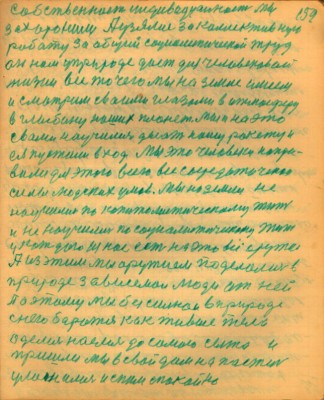 собственность индивидуальность мы 159
захоронили А узялись за коллективную
работу За общий социалистический труд
он нам у природе даст для человеческой
жизни все то чего мы на земле имеем
и смотрим своими глазами в атмосферу
в глубину наших планет мы и на это
сами научились делать нашу ракету и
её пустили в ход Мы это человеки
для этого всего все сосредоточено
силы людских умов. Мы на земле не
научились по капиталистическому жить
и не научились по социалистическому жить
у каждого у нас есть на это всё оружие
А из этим мы оружием поделались в
природе Зависемая люди от неё
Поэтому мы бессильные в природе
с нею бороться как живые тела
оделся наелся до самого сыто и
пришли мы в свой дом на постель
уложился и спим спокойно